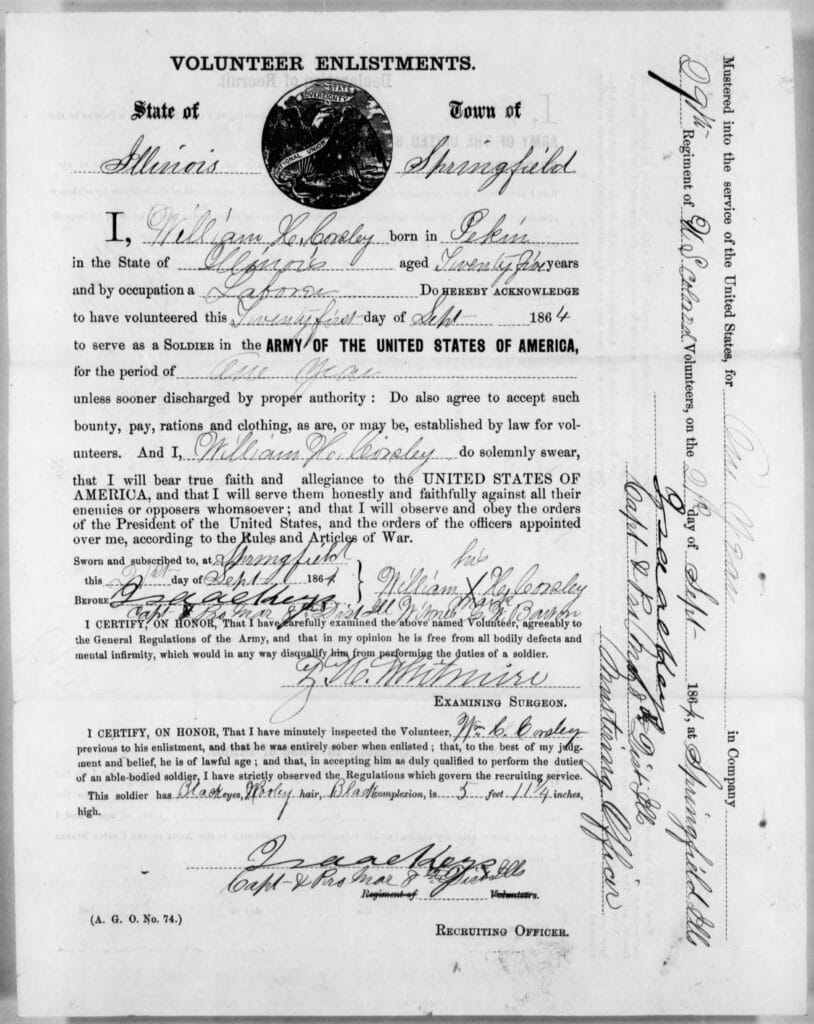 VOLUNTEER ENLISTMENTS.
State of Town of
STATE SOVEREIGNTY
NATIONAL UNION
Illinois Springfield
I, William H. Corsley born in Pekin
in the State of Illinois aged Twenty five years
and by occupation a Laborer DO HEREBY ACKNOWLEDGE
to have volunteered this Twenty first day of Sept 1864
to serve as a SOLDIER in the ARMY OF THE UNITED STATES OF AMERICA,
for the period of One Year
unless sooner discharged by proper authority: Do also agree to accept such
bounty, pay, rations and clothing, as are, or may be, established by law for vol-
unteers. And I, William H. Corsley do solemnly swear,
that I will bear true faith and allegiance to the UNITED STATES OF
AMERICA, and that I will serve them honestly and faithfully against all their
enemies or opposers whomsoever; and that I will observe and obey the orders
of the President of the United States, and the orders of the officers appointed
over me, according to the Rules and Articles of War.
Sworn and subscribed to, at Springfield
this 21st day of Sept 1864
BEFORE Isaac Keys
Capt & Pro Mar 8th Dist Ill
his
William X H. Corsley
mark
Witness
I CERTIFY, ON HONOR, That I have carefully examined the above named Volunteer, agreeably to
the General Regulations of the Army, and that in my opinion he is free from all bodily defects and
mental infirmity, which would in any way disqualify him from performing the duties of a soldier.
Whitmire
EXAMINING SURGEON.
I CERTIFY, ON HONOR, That I have minutely inspected the Volunteer, Wm H. Corsley
previous to his enlistment, and that he was entirely sober when enlisted; that, to the best of my judg-
ment and belief, he is of lawful age; and that, in accepting him as duly qualified to perform the duties
of an able-bodied soldier, I have strictly observed the Regulations which govern the recruiting service.
This soldier has Black eyes, Wooley hair, Black complexion, is 5 feet 11¼ inches,
high.
Isaac Keys
Capt & Pro Mar 8th Dist Ills
Regiment of Volunteers.
(A. G. O. No. 74.)
RECRUITING OFFICER.
Mustered into the service of the United States, for One Year in Company
29th Regiment of U.S. Colored Volunteers, on the 21st day of Sept 1864, at Springfield Ills
Isaac Keys
Capt & Pro Mar 8th Dist Ills
Mustering Officer